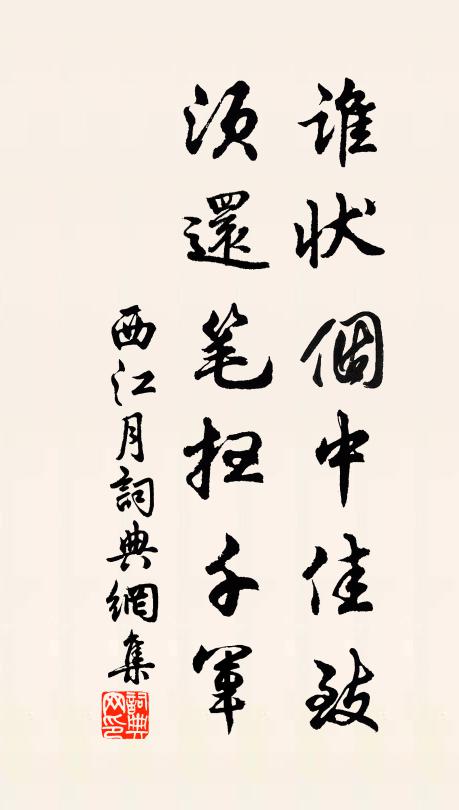 誰状個中佳致
須還笔扫千軍
西江月詞典網集
詞典网印